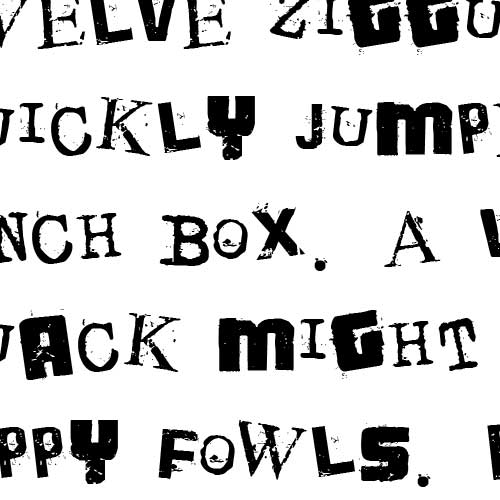 WELVE ZIGGU
UICKLY JUMP
NCH BOX. A
JACK MIGHT
PPY FOWLS.